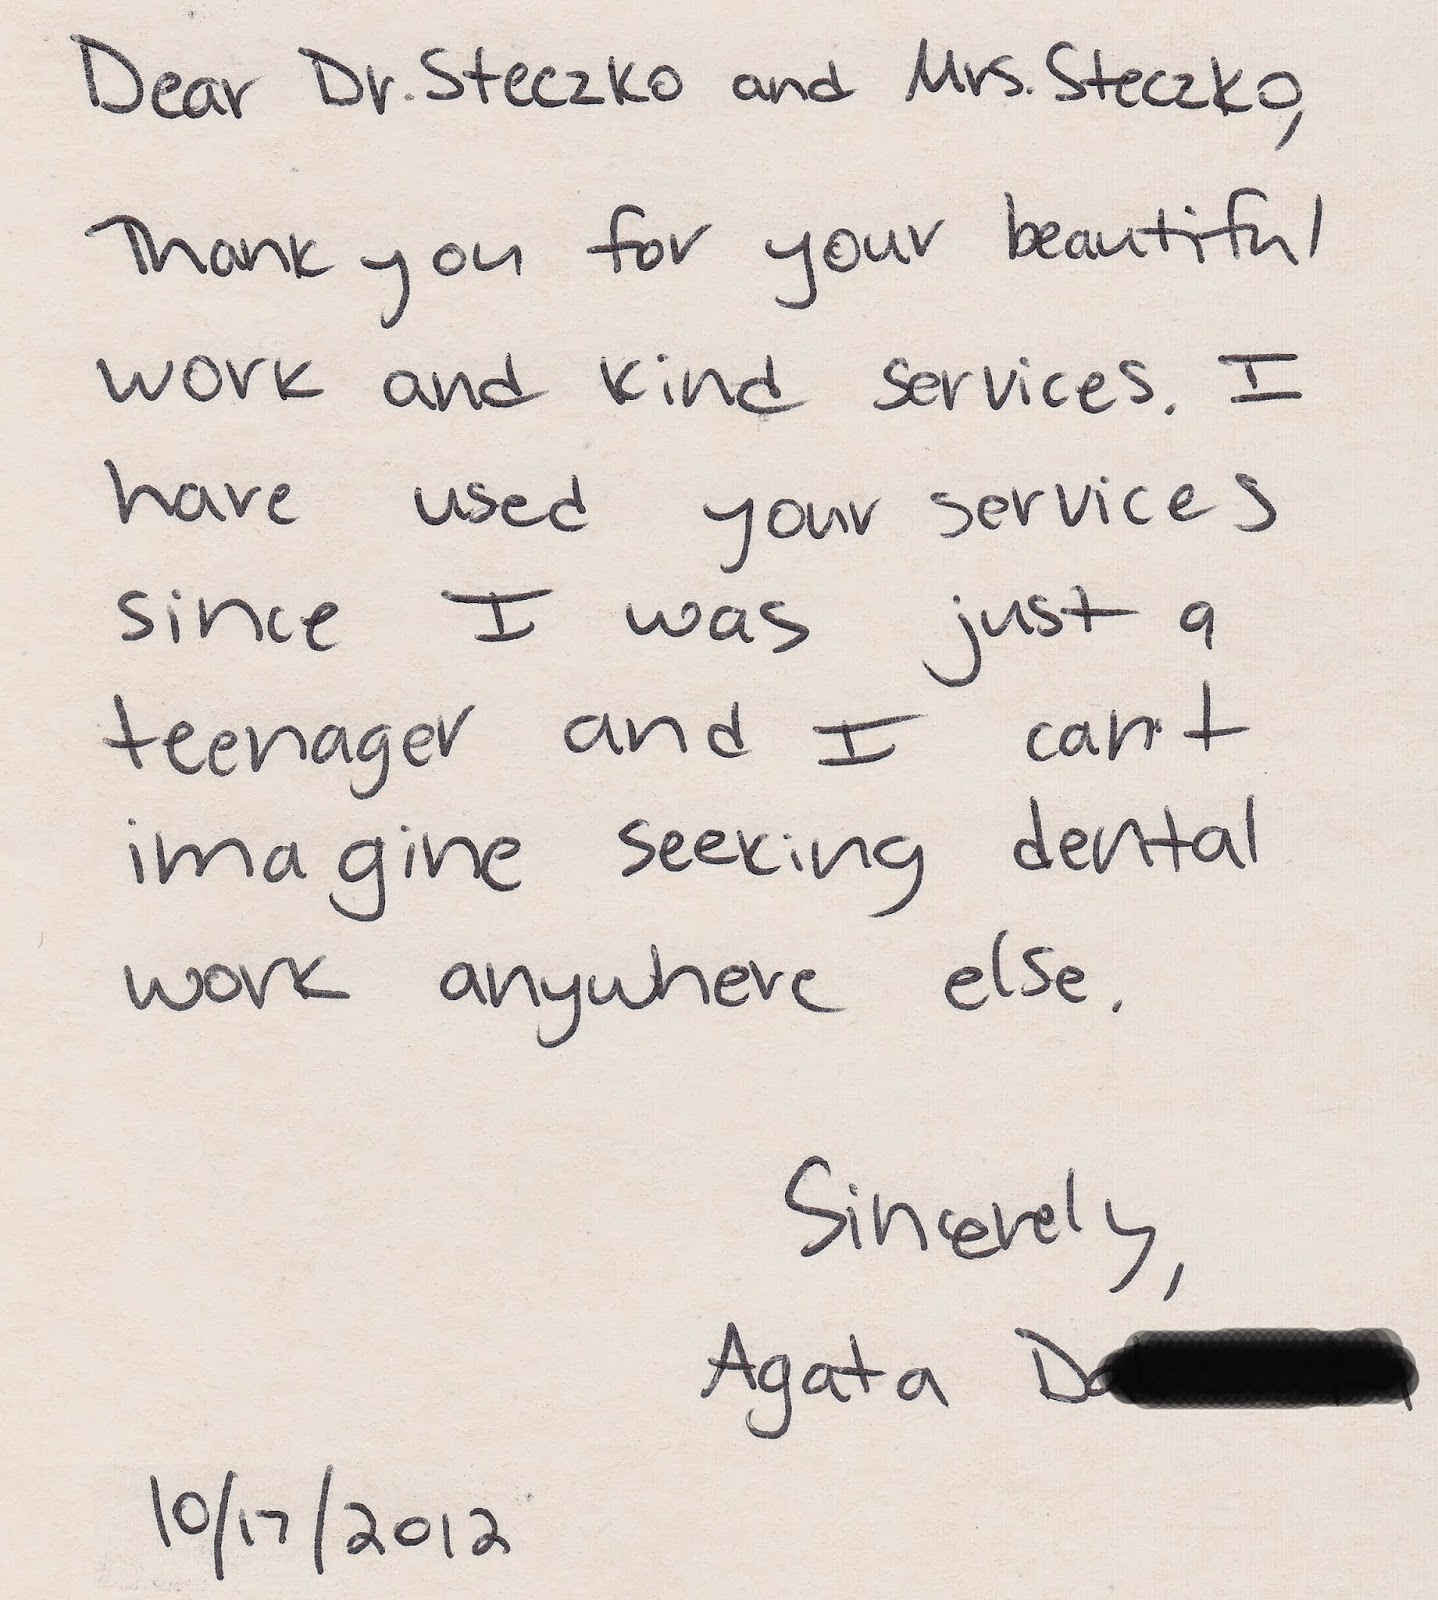 Dear Dr. Steczko and Mrs. Steczko,
Thank you for your beautiful
work and kind services. I
have used your services
since I was just a
teenager and I can't
imagine seeking dental
work anywhere else.
Sincerely,
Agata
10/17/2012